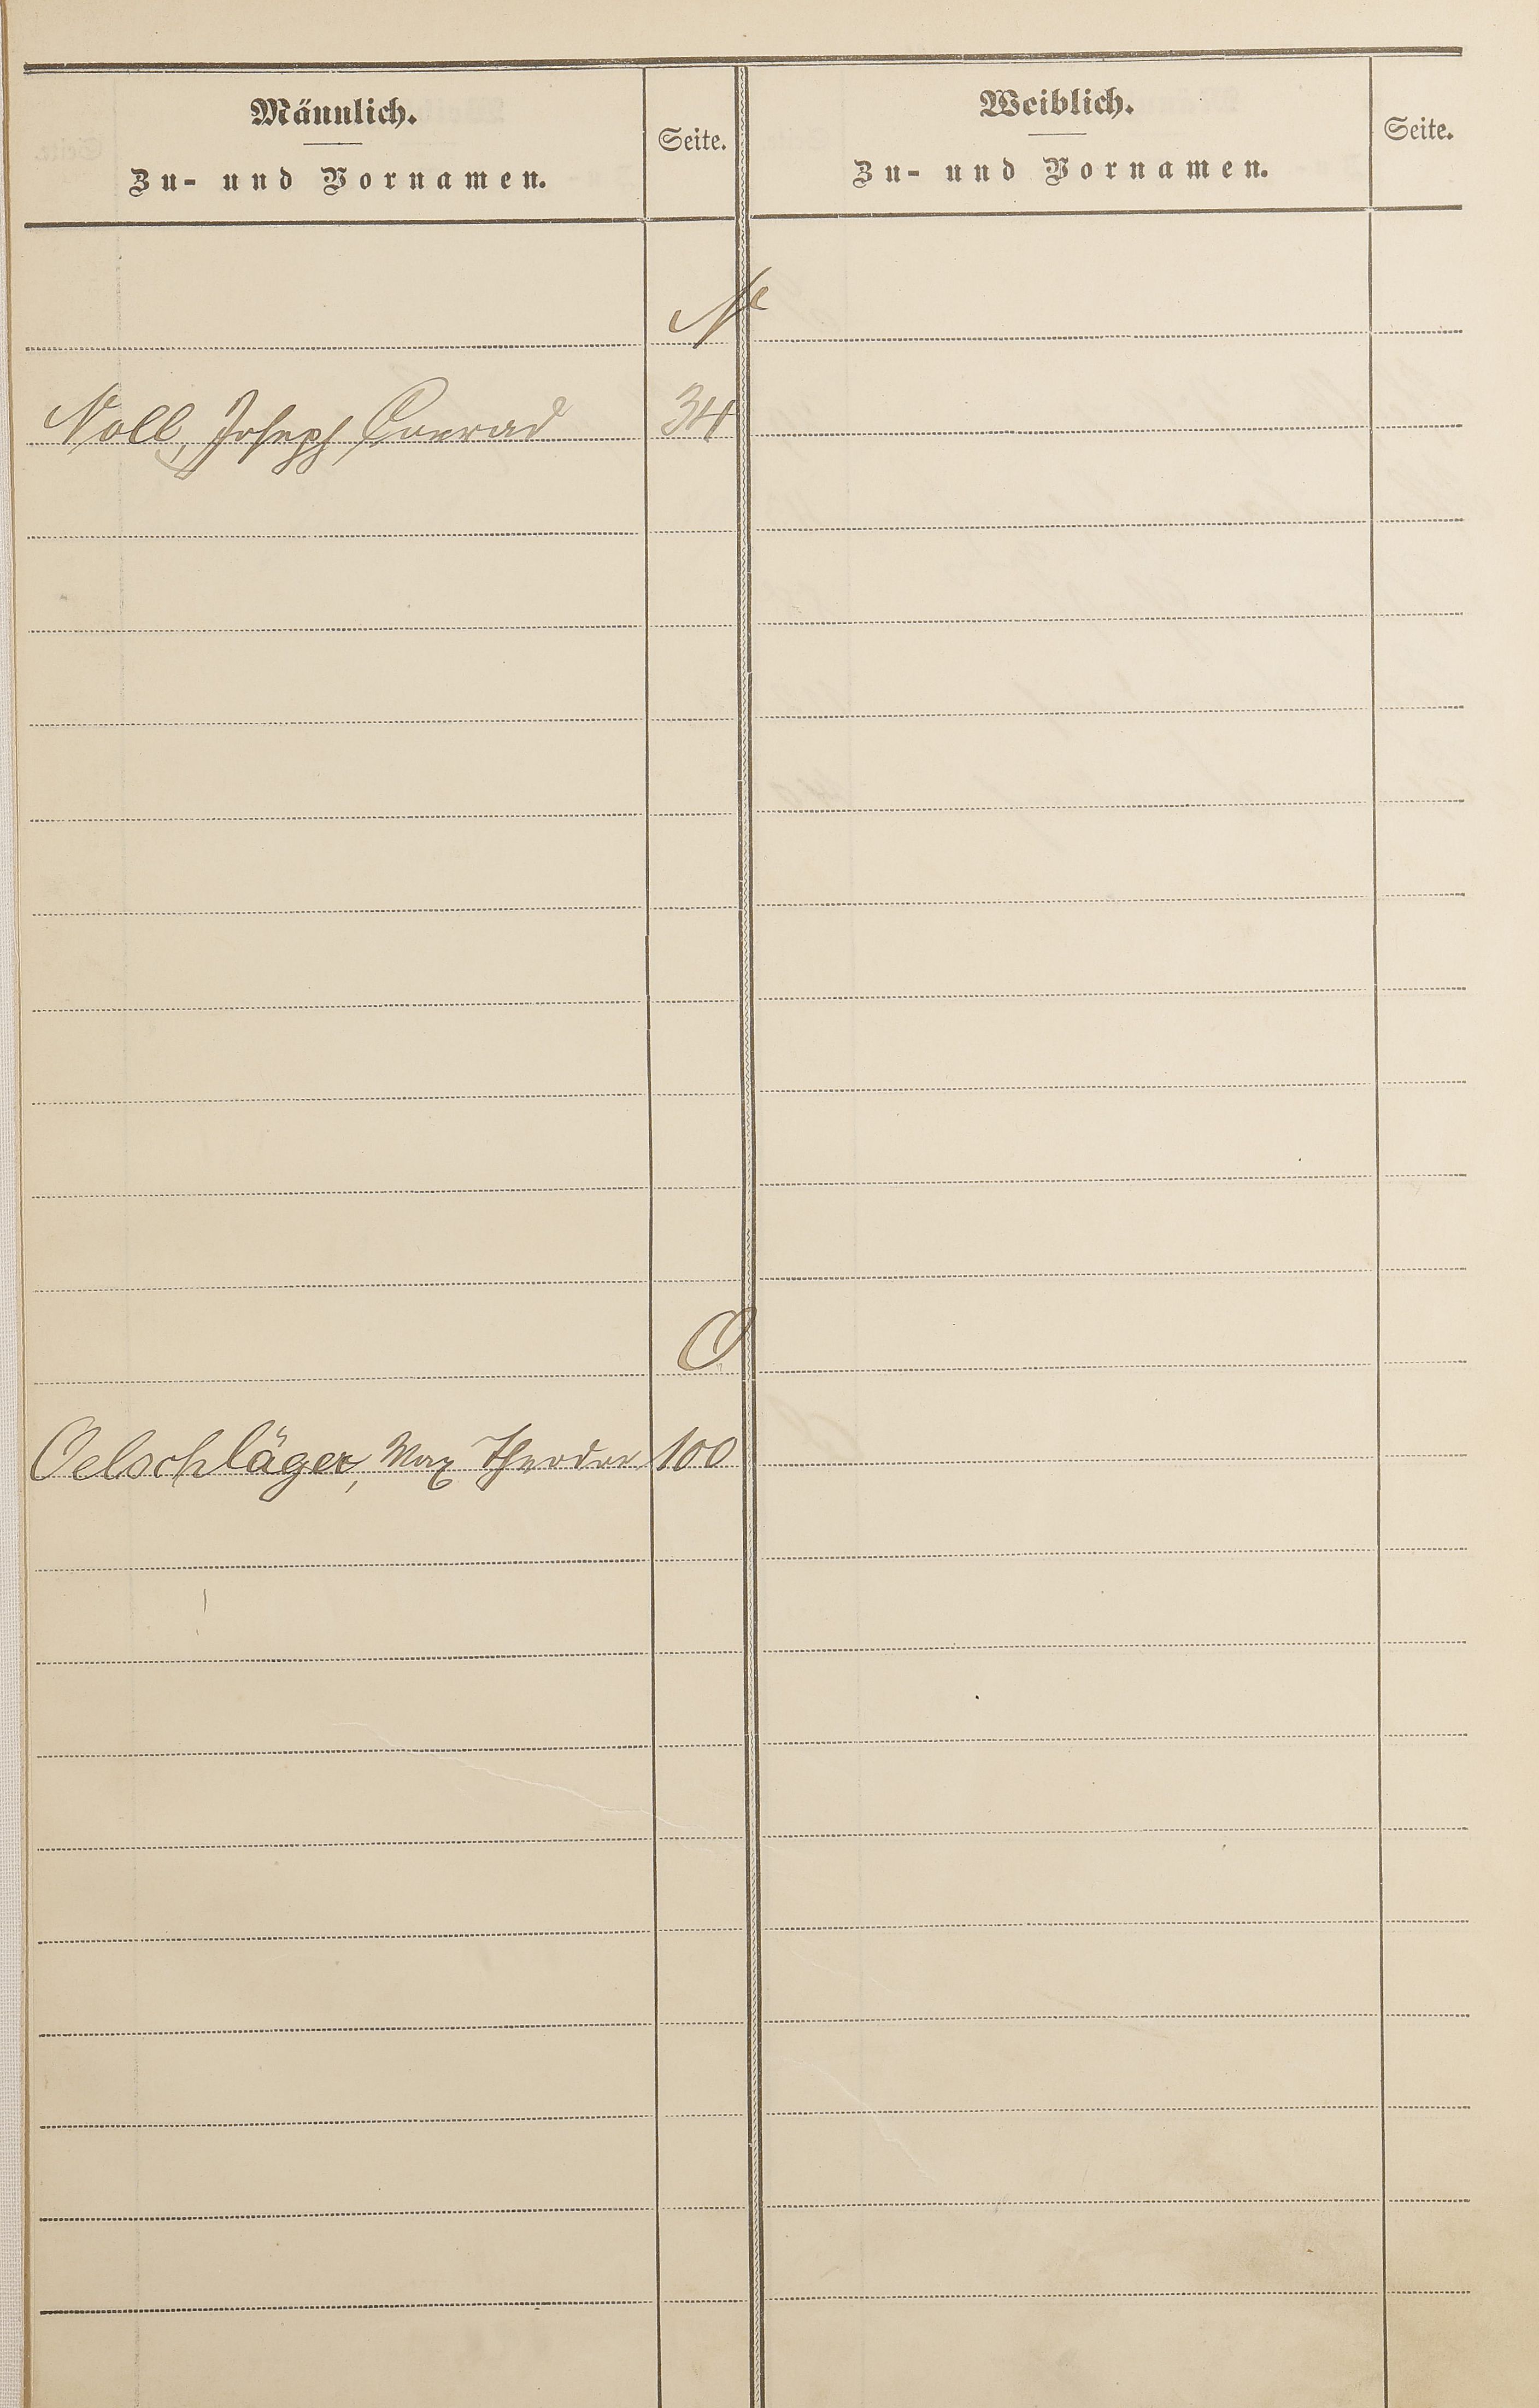 Männlich.
Zu- und Vornamen.
Seite.
Weiblich.
Zu- und Vornamen.
Seite.
N
Noll, Joseph Conrad 34
O
Oelschläger, Max Theodor 100